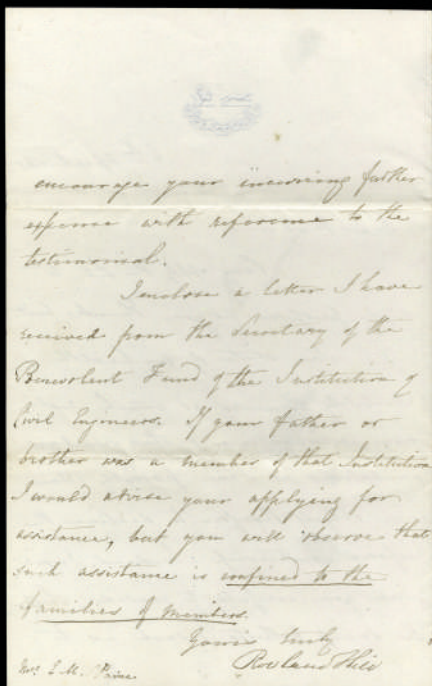 encourage your incurring further
expense with reference to the
testimonial.
I enclose a letter I have
received from the Secretary of the
Benevolent Fund of the Institution of
Civil Engineers. If your father or
brother was a member of that Institution
I would advise your applying for
assistance, but you will observe that
such assistance is confined to the
families of members.
Yours truly
Rowland Hill